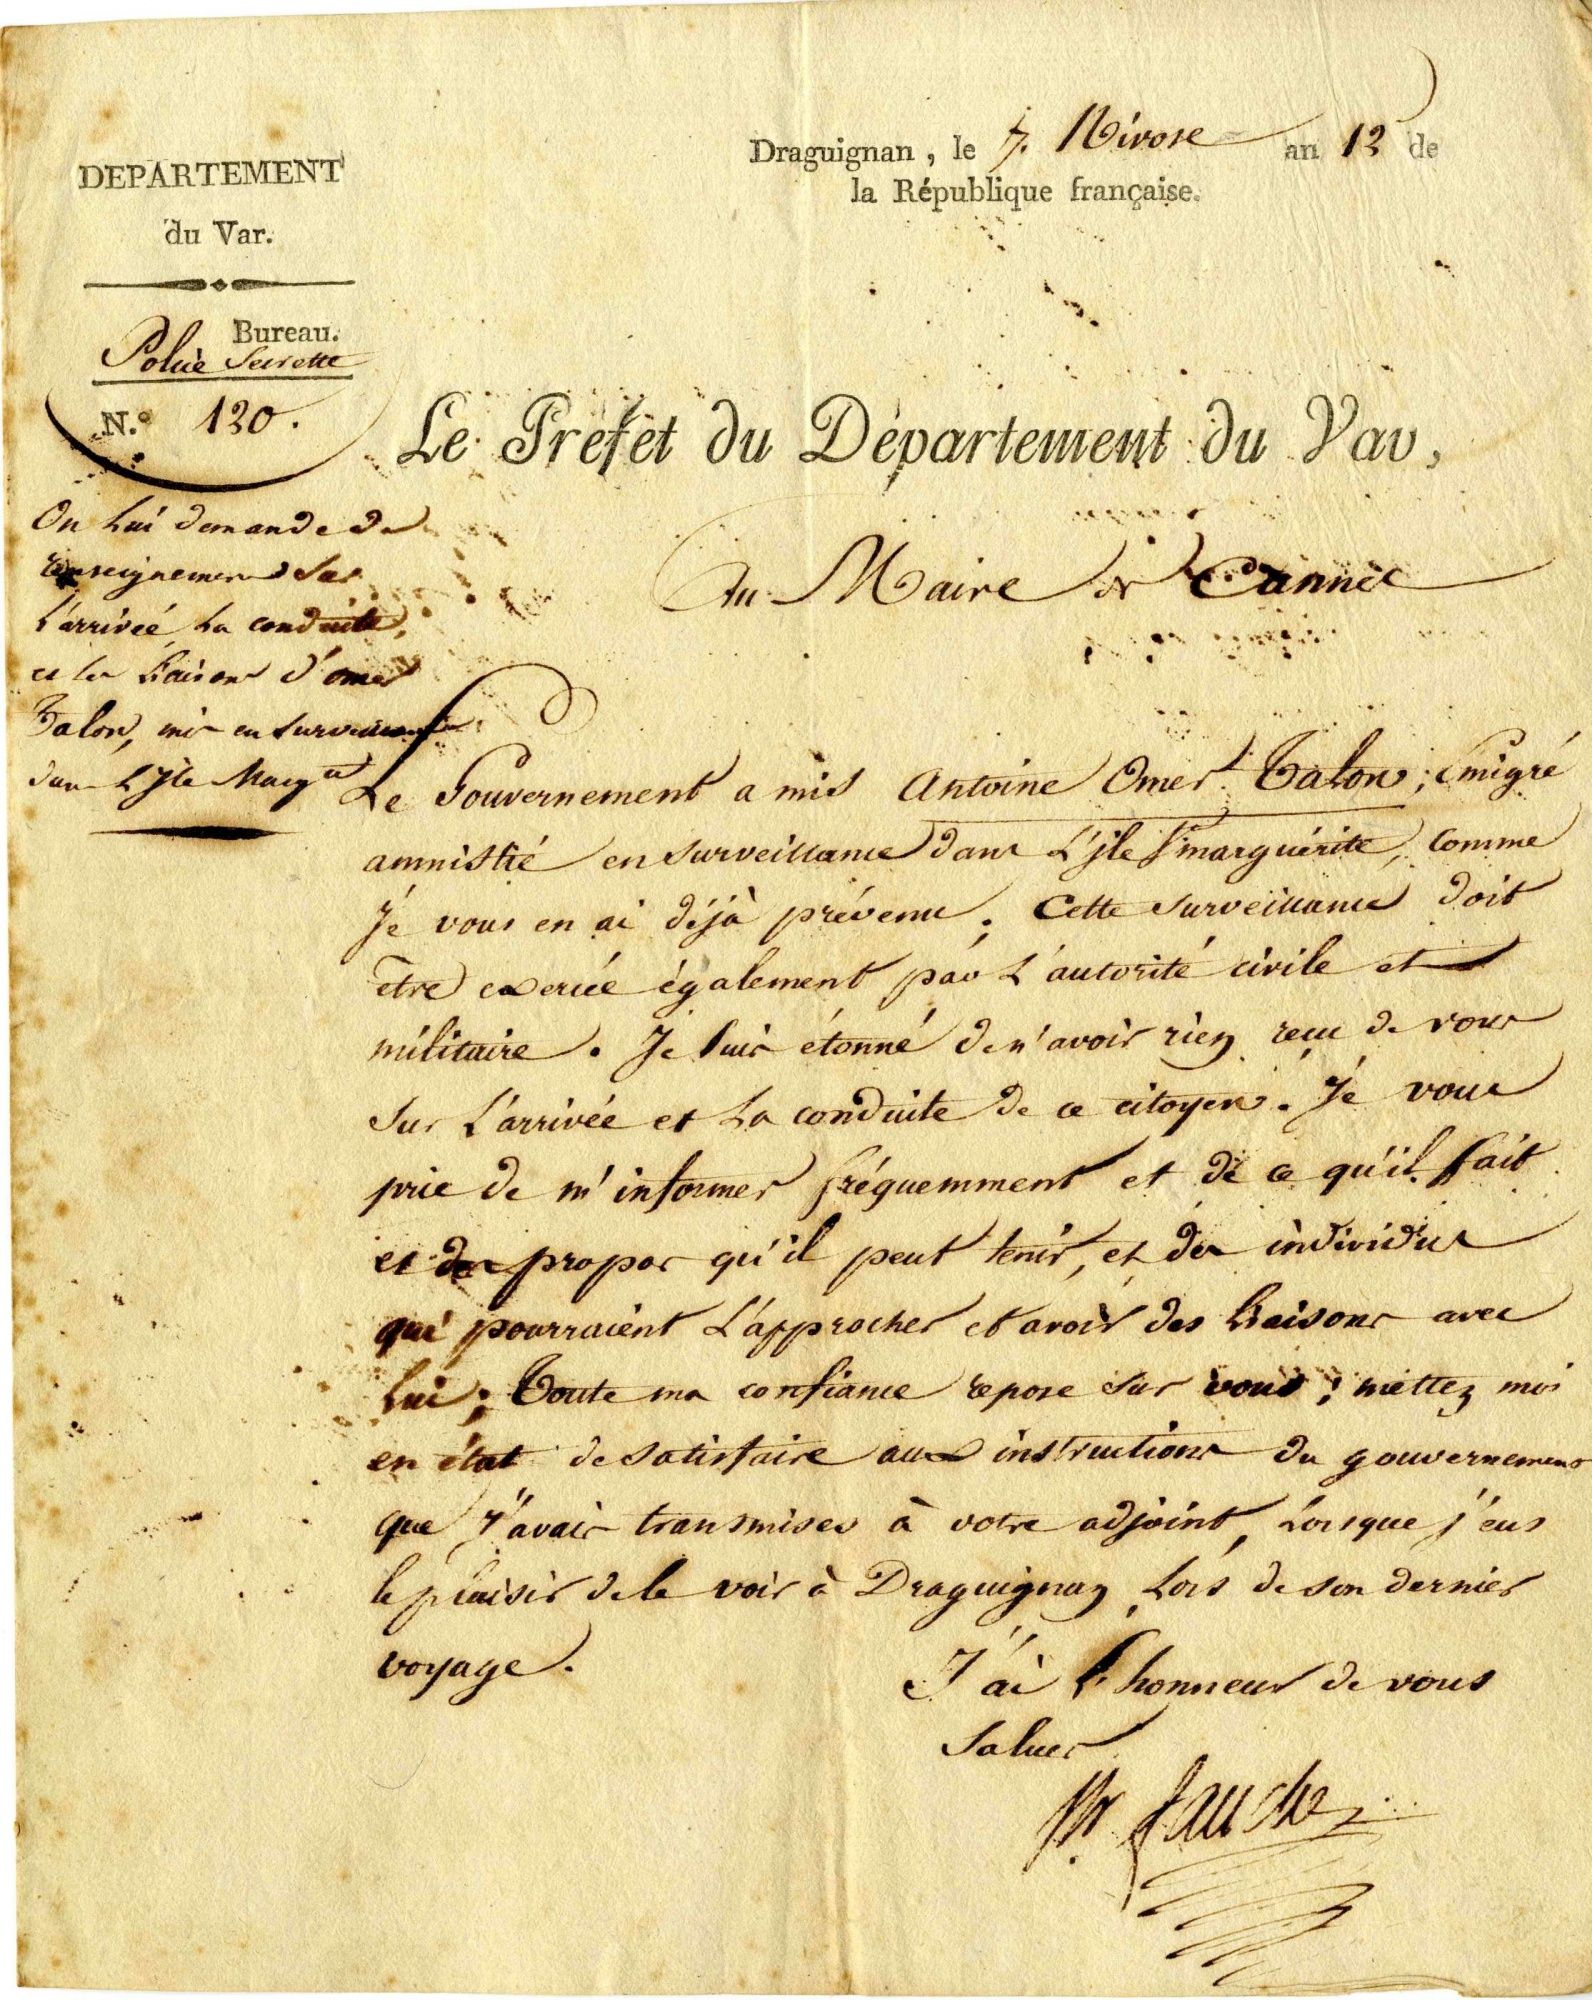 DEPARTEMENT
du Var.
Bureau.
Police Secrette
N.° 120.
Draguignan, le 7. Nivose an 12 de
la République française.
Le Préfet du Département du Var,
Au Maire de Cannes
On lui demande des
renseignemens sur
l'arrivée, la conduite,
et les liaisons d'omer
Talon, mis en surveillance
dans l'Jle Margte
Le Gouvernement a mis Antoine Omer Talon, émigré
amnistié en surveillance dans l'jle Ste marguérite, comme
Je vous en ai déjà prévenu. Cette surveillance doit
être exercée également par l'autorité civile et
militaire. Je suis étonné de n'avoir rien reçu de vous
sur l'arrivée et la conduite de ce citoyen. Je vous
prie de m'informer fréquemment et de ce qu'il fait
et des propos qu'il peut tenir, et des individus
qui pourraient l'approcher et avoir des liaisons avec
lui; Toute ma confiance repose sur vous; mettez moi
en état de satisfaire aux instructions du gouvernement
que j'avais transmises à votre adjoint, lorsque j'eus
le plaisir de le voir à Draguignan, lors de son dernier
voyage.
J'ai l'honneur de vous
saluer
Fauchet